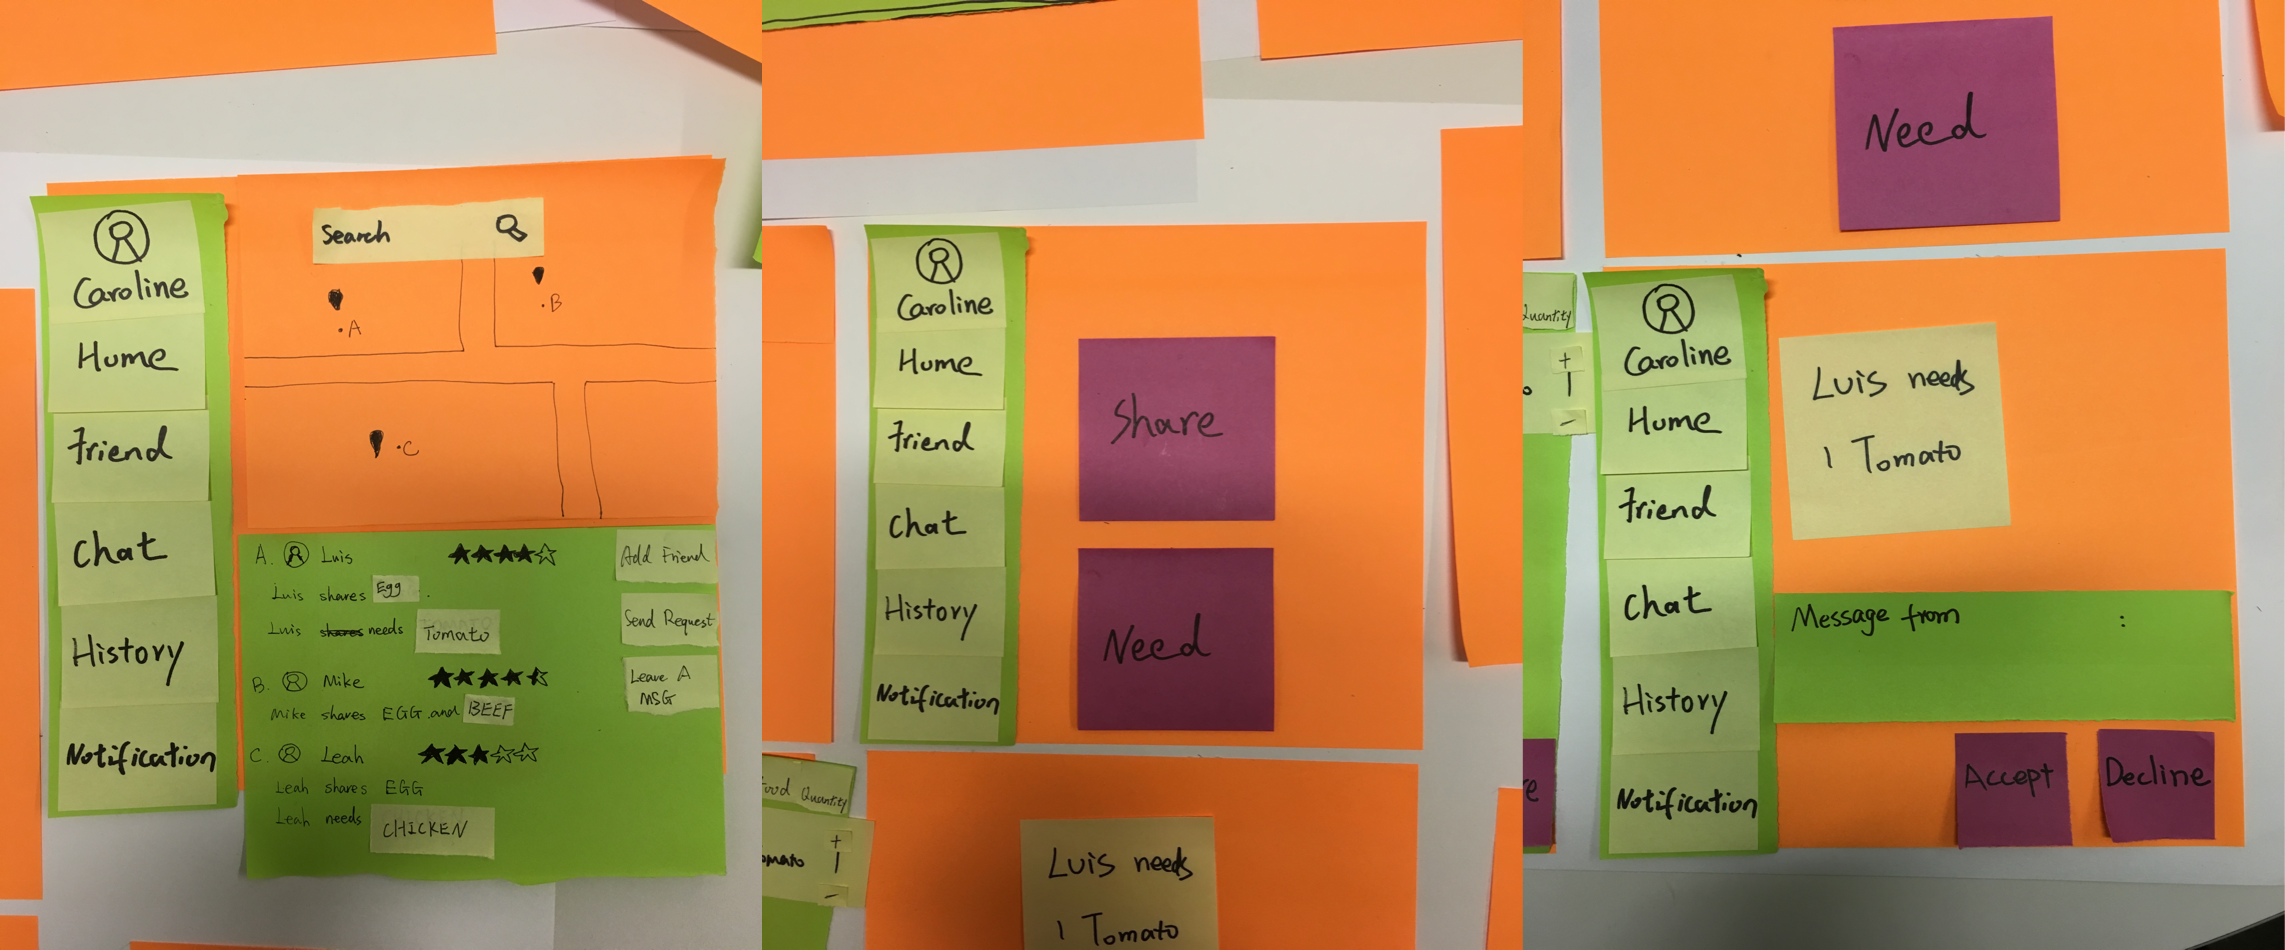 Caroline
Home
Friend
Chat
History
Notification
Search
A
B
C
A. Luis
Luis shares Egg .
Luis shares needs Tomato
B. Mike
Mike shares EGG and BEEF
C. Leah
Leah shares EGG
Leah needs CHICKEN
Add Friend
Send Request
Leave A
MSG
Caroline
Home
Friend
Chat
History
Notification
Share
Need
Food Quantity
+
1
-
Luis needs
1 Tomato
Need
Quantity
+
1
-
Caroline
Home
Friend
Chat
History
Notification
Luis needs
1 Tomato
Message from :
Accept
Decline